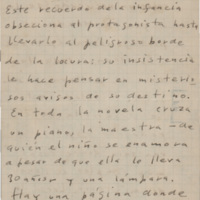 Este recuerdo de la infancia
obsecciona al protagonista hasta
llevarlo al peligroso borde
de la locura: su insistencia
le hace pensar en misterio
sos avisos de su destino.
En toda la novela cruza
un piano, la maestra – de
quien el niño se enamora
a pesar de que ella lo lleva
10 años – y una lámpara.
Hay una página donde